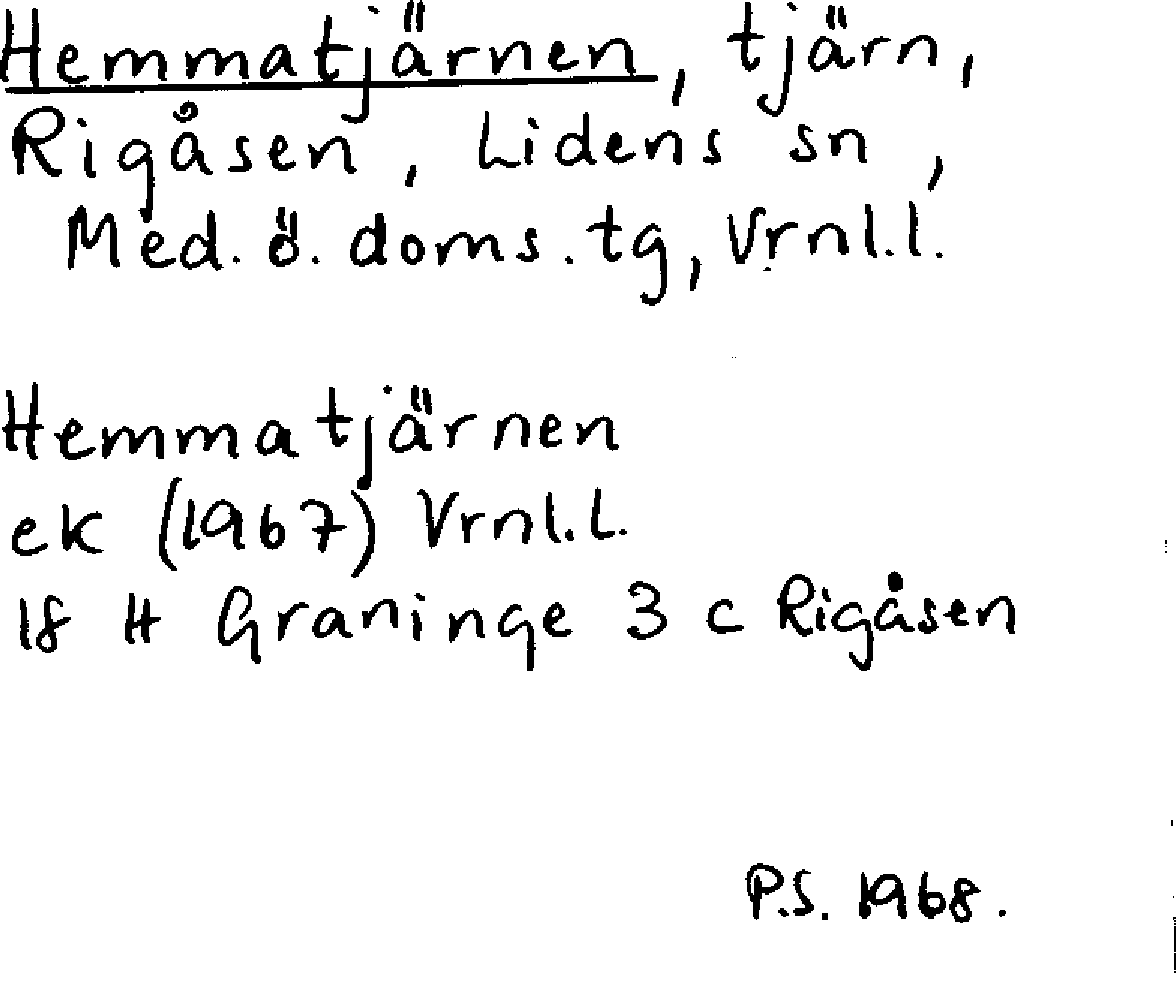 Hemmatjärnen, tjärn,
Rigåsen, Lidens sn,
Med. ö. doms. tg, Vrnl.l.
Hemmatjärnen
ek (1967) Vrnl.l.
18 H Graninge 3 c Rigåsen
P.S. 1968.